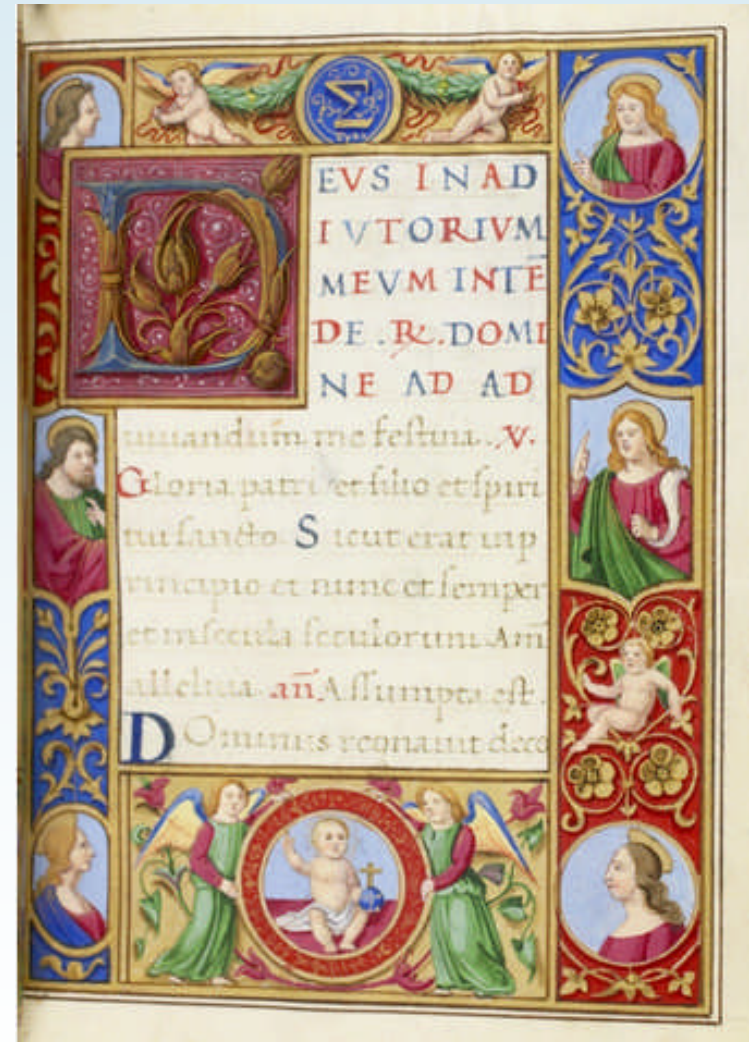 DEVS IN AD
IVTORIVM
MEVM INTE
DE. R. DOMI
NE AD AD
iuuandum̄ me festina. V.
Gloria patri et filio et spiri
tui sancto S icut erat in p
rincipio et nunc et semper
et in secula seculorum Am̄
alleluia an̄. Assumpta est.
DOminus regnauit deco